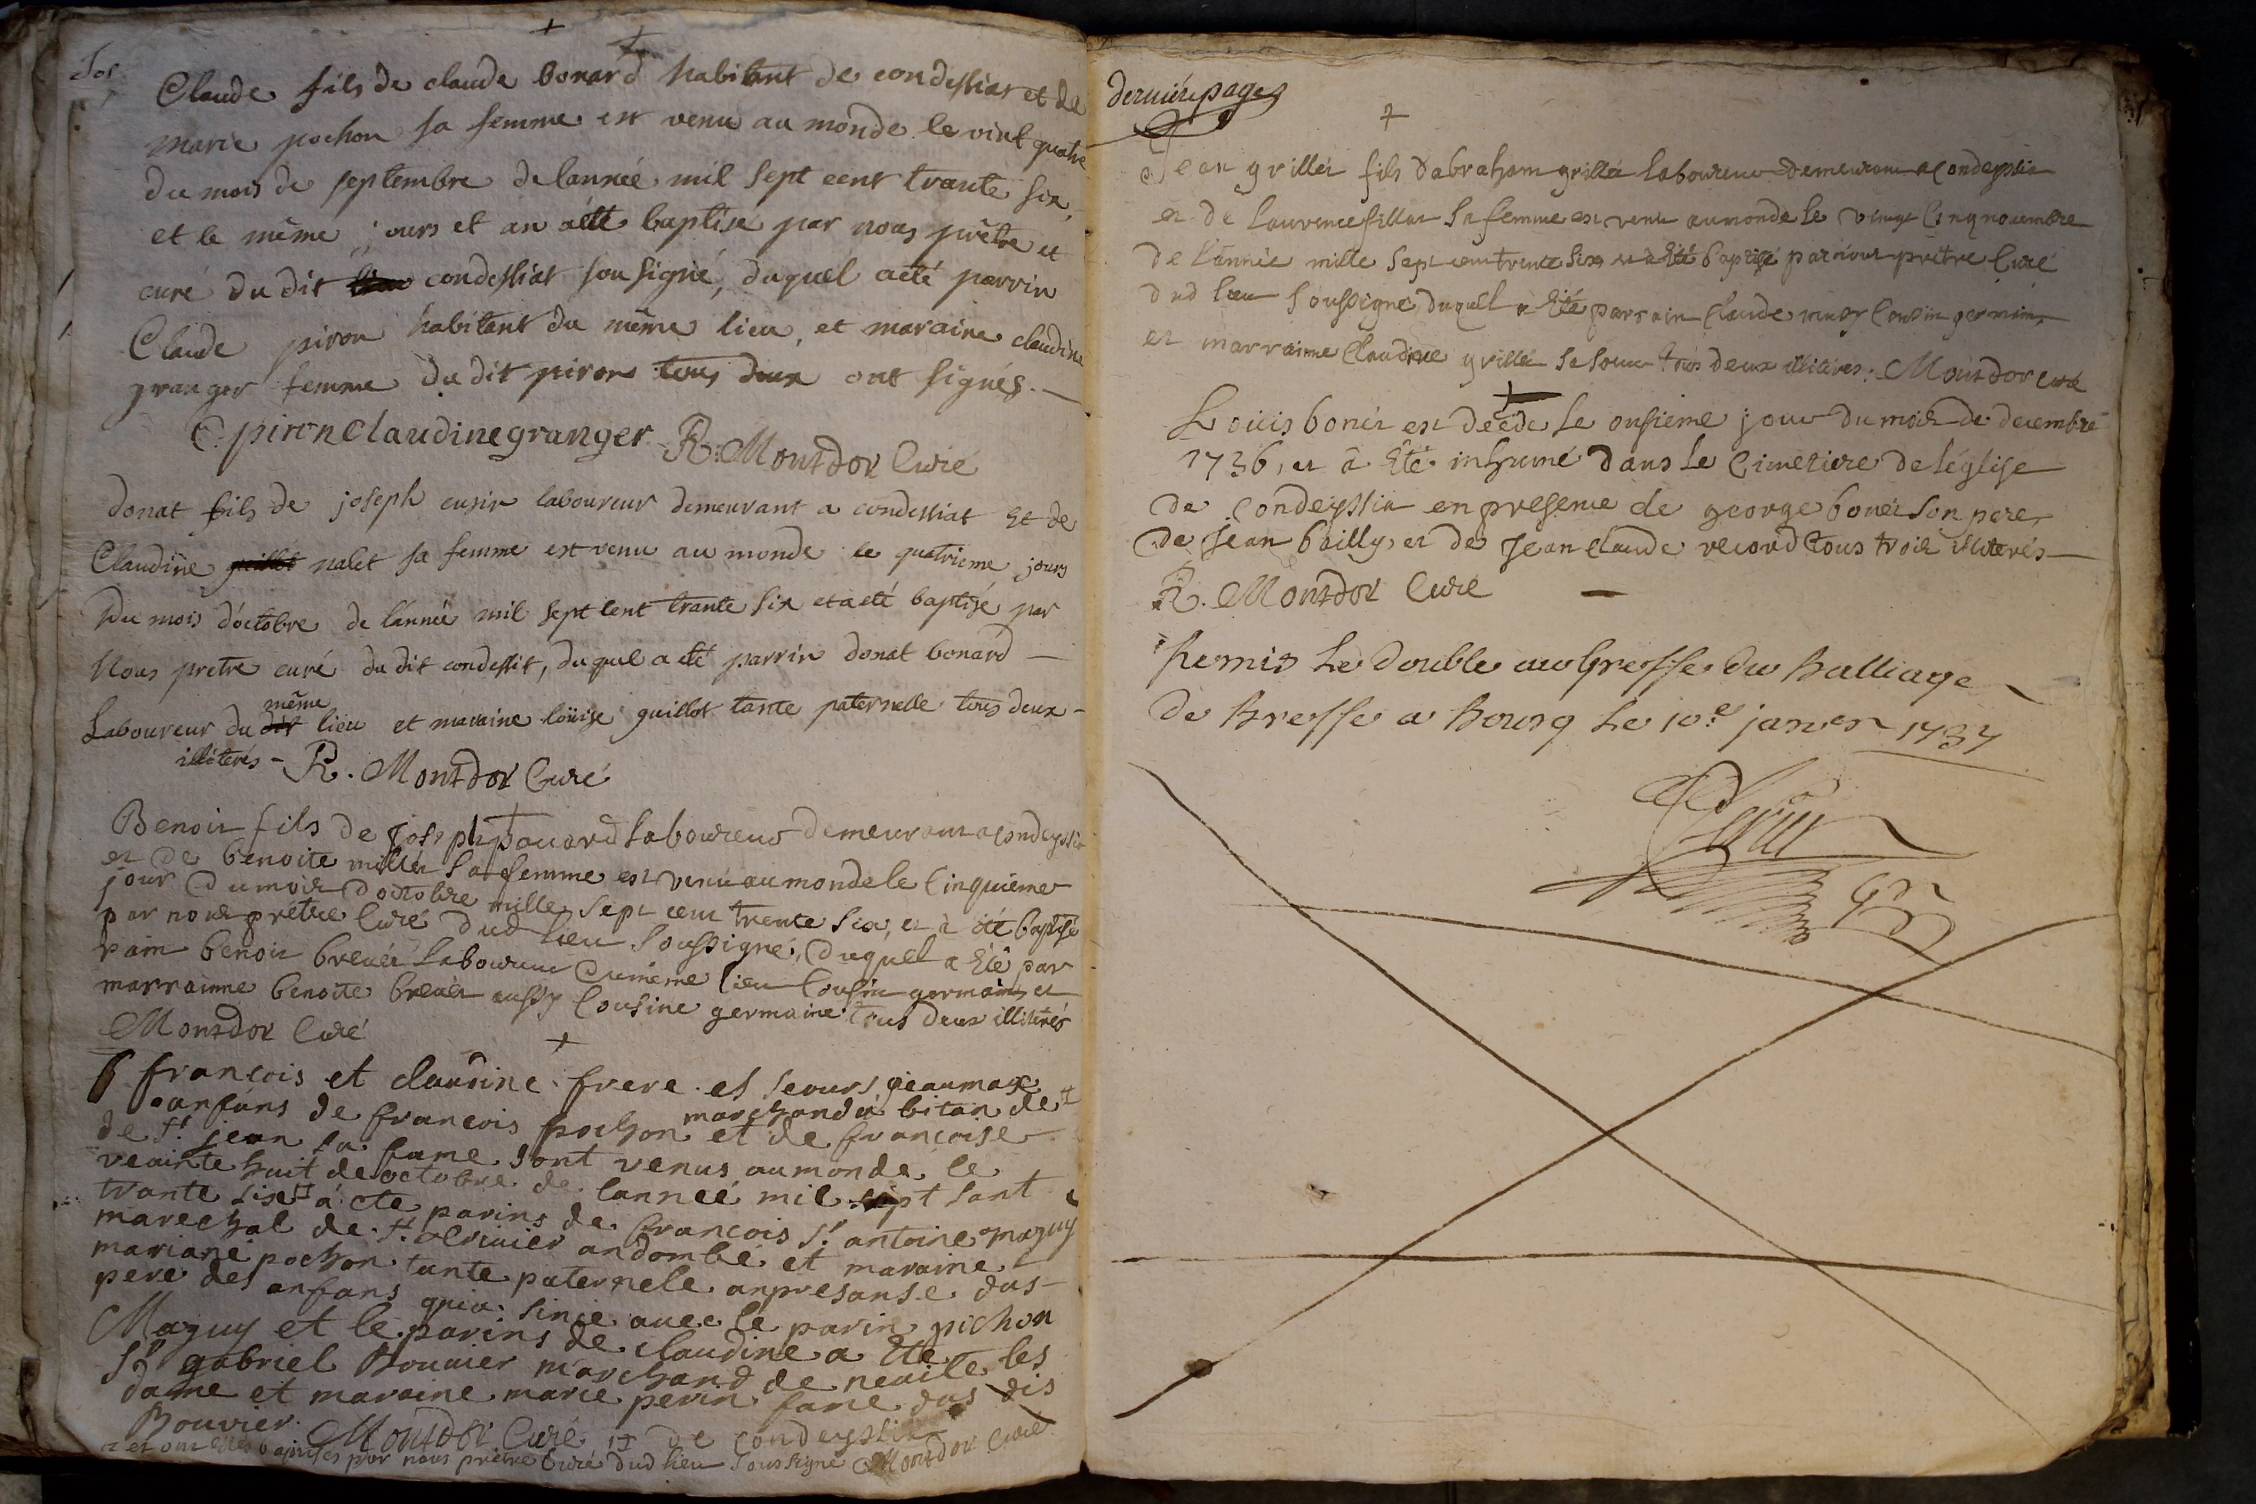 Claude fils de claude Bonard habitant de condessiat et de
marie pochon sa femme est venu au monde le vint quatre
du mois de septembre de lannée mil sept cent trante six,
et le même jours et an a été baptisé par nous prêtre et
curé du dit condessiat sousigné, duquel a été parrin
Claude piron habitant du même lieu, et maraine claudine
granger femme du dit piron tous deux ont signés.
C. piron Claudine granger R. Montdor Curé
donat fils de joseph cusin laboureur demeurant a condessiat Et de
Claudine nalet sa femme est venu au monde le quatrieme jours
Du mois d'octobre de l'année mil sept cent trante six et a eté baptisé par
Nous pretre curé du dit condessit, duquel a eté parrin donat bonard
Laboureur du même lieu et maraine loüise guillot tante paternelle tous deux
illiterés - R. Montdor Curé
Benoit fils de Joseph Laboureur demeurant a condeyssia
et de benoite millet sa femme est venu au monde le Cinquieme
jour du mois d'octobre mille sept cent trente six, et à été baptisé
par nous prétre Curé dud lieu soussigné, duquel a Eté par
rain benoit brevet Laboureur du meme lieu Cousin germain, et
marrainne benoite brevet aussy Cousine germaine tous deux illiterés
Montdor Curé
francois et claudine frere et seours jeaumaux
anfans de francois pochon marchand abitan de
de St. jean sa fame sont venus au monde le
et de francoise
veainte huit de octobre de lanneé mil sept sant
trante sise a ete parins de francois Sr. antoine maguy
marechal de St. olivier andombe et maraine
mariane pochon tante paternele anpresanse das
pere des anfans quia sinie avec le parin pichon
Maguy et le parins de claudine a Ete les
Sr gabriel Bouvier marchand de neuile les
dame et maraine marie perin fame das dis
Bouvier. Montdor Curé de condeyssia
et ont étés baptisés par nous pretre Curé dud lieu soussigné Montdor Curé
derniére page
Jean grillét fils d'abraham grillét laboureur demeurant a Condeyssia
et de Laurence fillat sa femme est venu au monde le vingt Cinq novembre
de l'année mille sept cent trente six et à été baptizé par nous prêtre Curé
dud lieu soussigné, duquel a Eté parrain Claude Cousin germain,
et marrainne Claudine grillét sa soeur tous deux illitérés. Montdor curé
Loüis bonét est décédé le onsieme jour du mois de decembre
1736, et à Eté inhumé dans le Cimetiere de léglise
de Condeyssia en presence de george bonét son pere,
de Jean bailly, et de Jean claude récord tous trois illiterés
R. Montdor Curé
Remis Le double au Greffe du Balliage
de Bresse a Bourg Le 10.e janver 1737